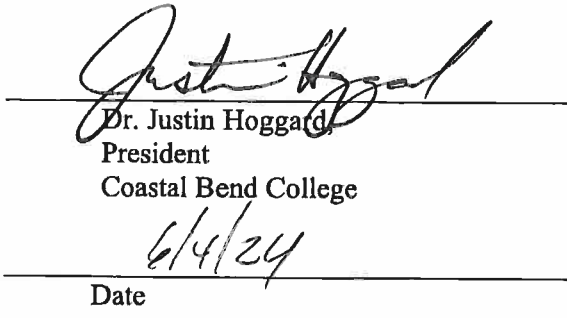 Justin Hoggard
Dr. Justin Hoggard,
President
Coastal Bend College
6/4/24
Date